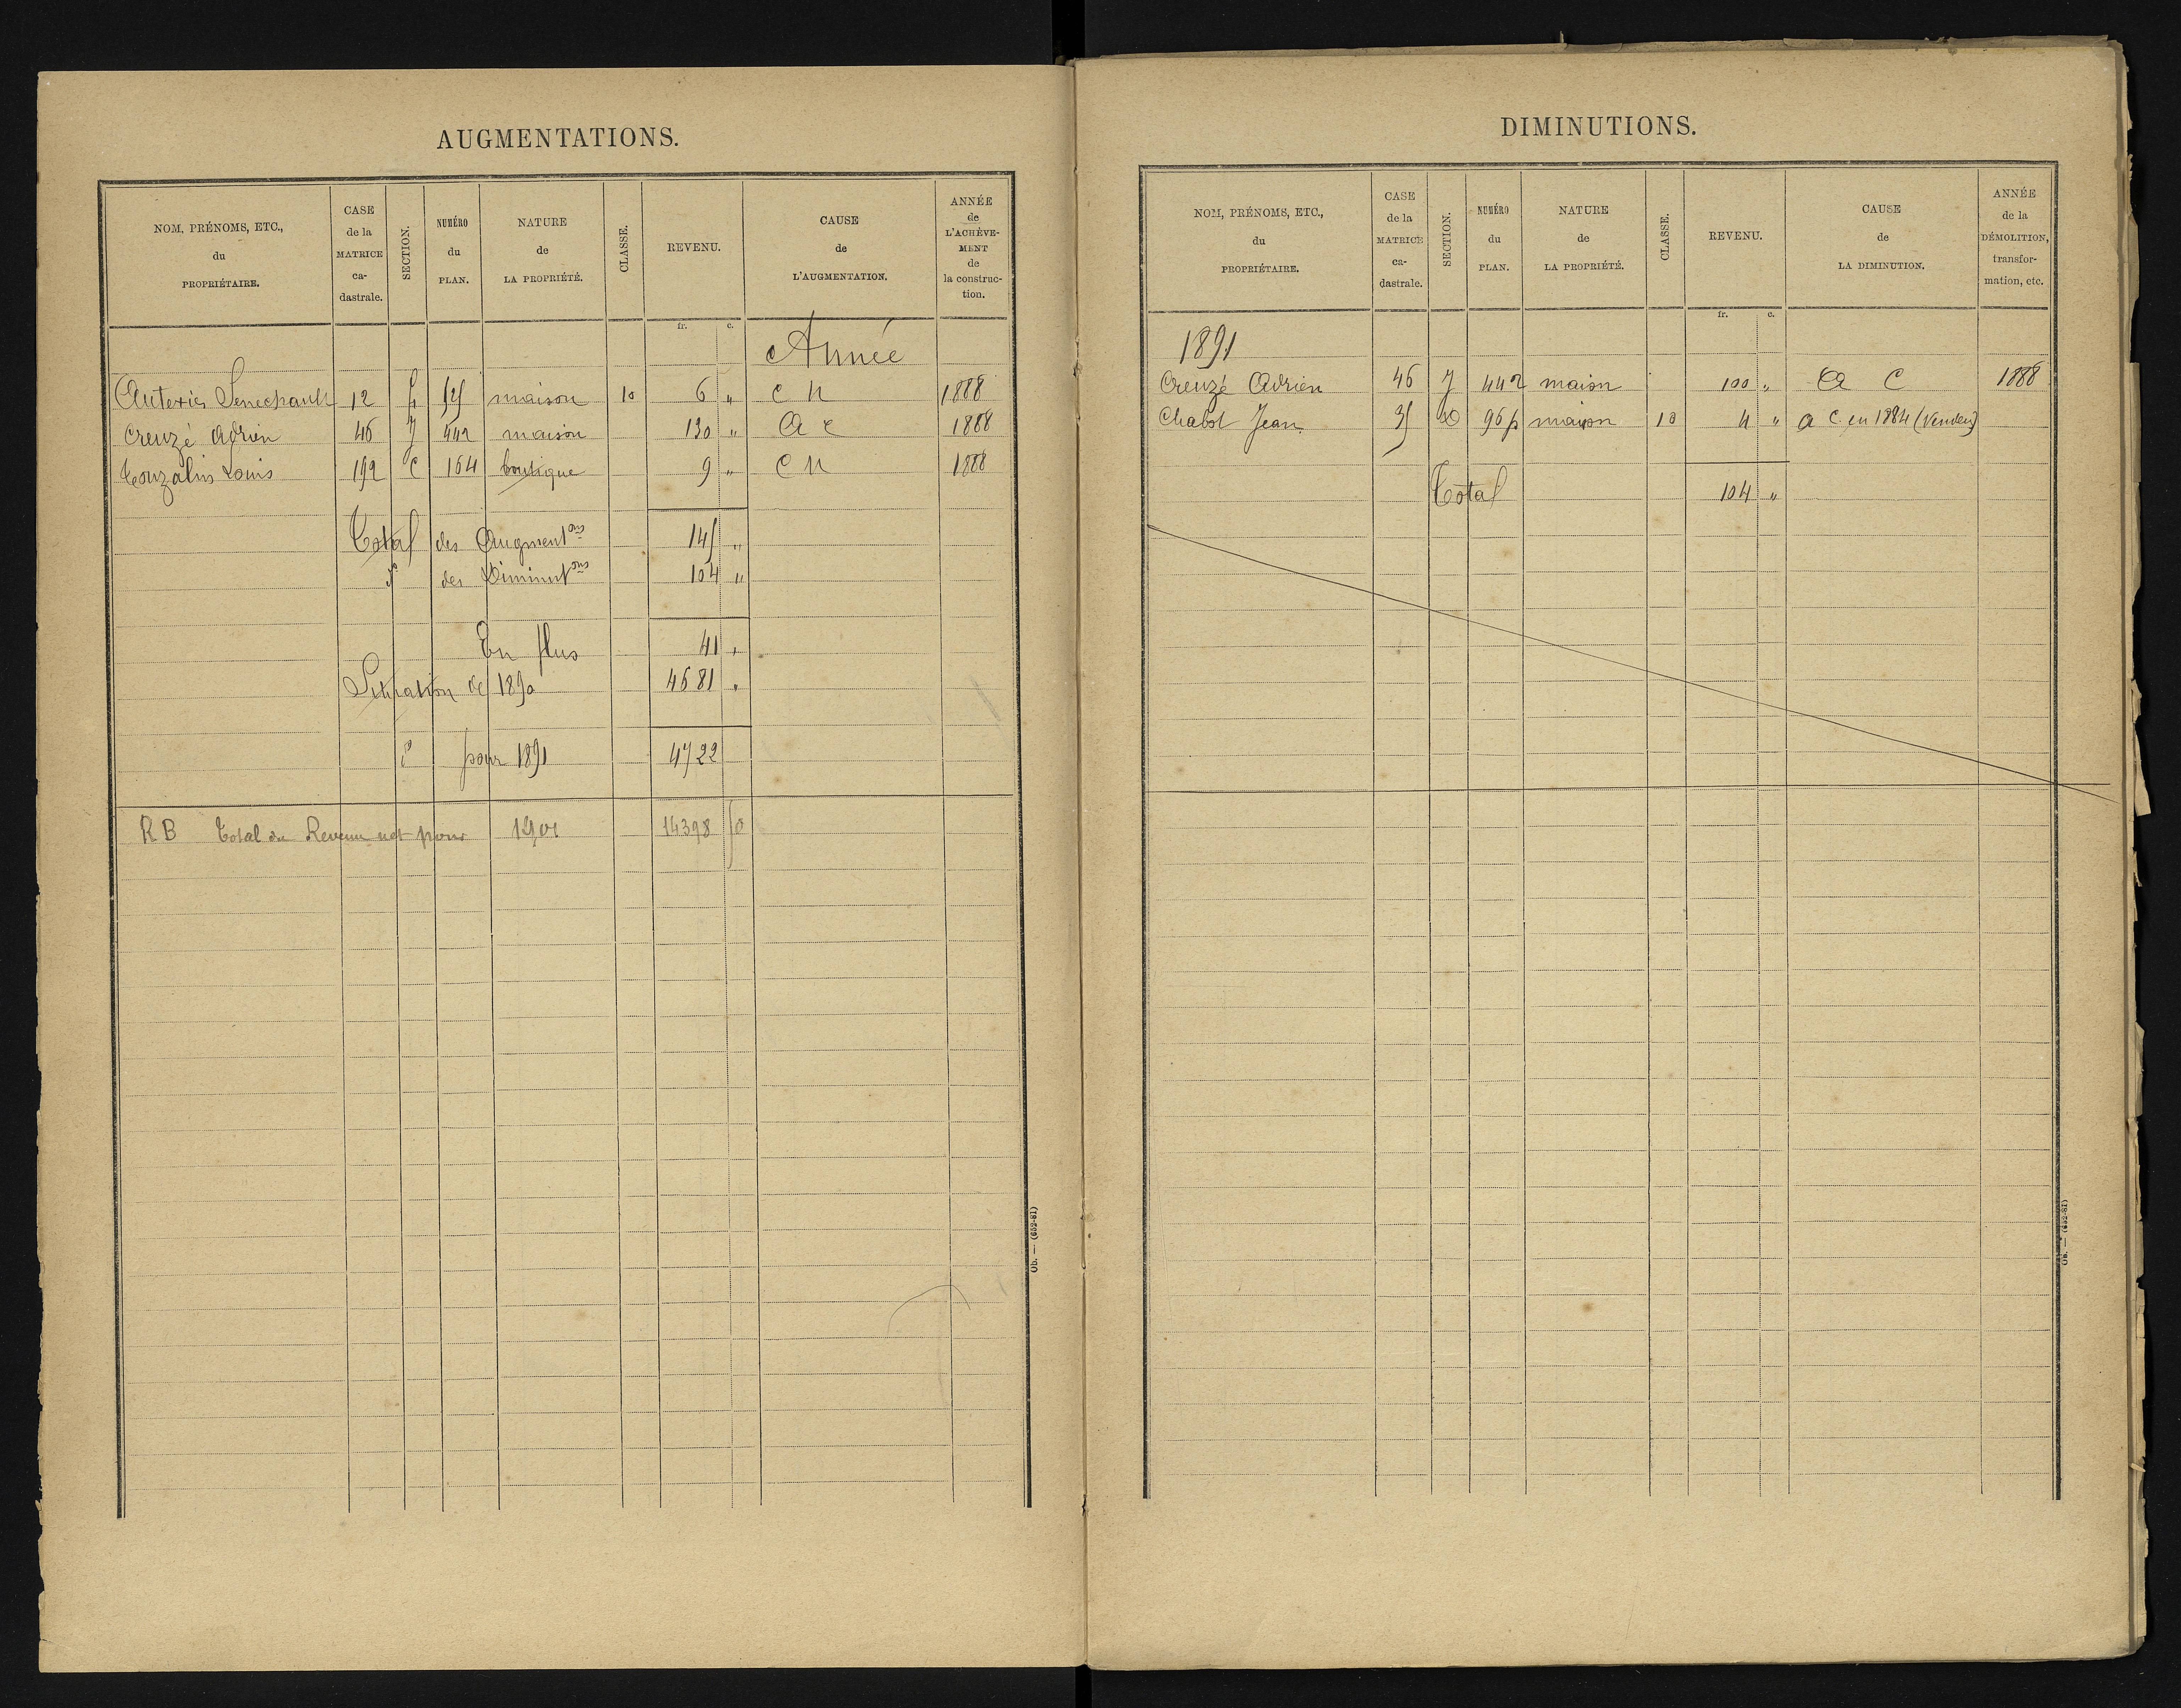 AUGMENTATIONS.
NOM, PRÉNOMS, ETC., du PROPRIÉTAIRE. | CASE de la MATRICE ca-dastrale. | SECTION. | NUMÉRO du PLAN. | NATURE de LA PROPRIÉTÉ. | CLASSE. | REVENU. | CAUSE de L'AUGMENTATION. | ANNÉE de L'ACHÈVE-MENT de la construc-tion.
fr. c.
Année
12 maison 10 6 " C N 1888
Creuzé Adrien 46 J 442 maison 130 " A C 1888
Touzalin Louis 192 C 164 boutique 9 " C N 1888
Total des Augmentons 145 "
do des Diminutons 104 "
En plus 41 "
Situation de 1890 4681 "
do pour 1891 4722
R B Total du Revenu net pour 1901 14398 50
Ob. — (652-81)
DIMINUTIONS.
NOM, PRÉNOMS, ETC., du PROPRIÉTAIRE. | CASE de la MATRICE ca-dastrale. | SECTION. | NUMÉRO du PLAN. | NATURE de LA PROPRIÉTÉ. | CLASSE. | REVENU. | CAUSE de LA DIMINUTION. | ANNÉE de la DÉMOLITION, transfor-mation, etc.
fr. c.
1891
Creuzé Adrien 46 J 442 maison 100 " A C 1888
Chabot Jean 35 D 96p maison 10 4 " A C en 1884
Total 104 "
Ob. — (652-81)